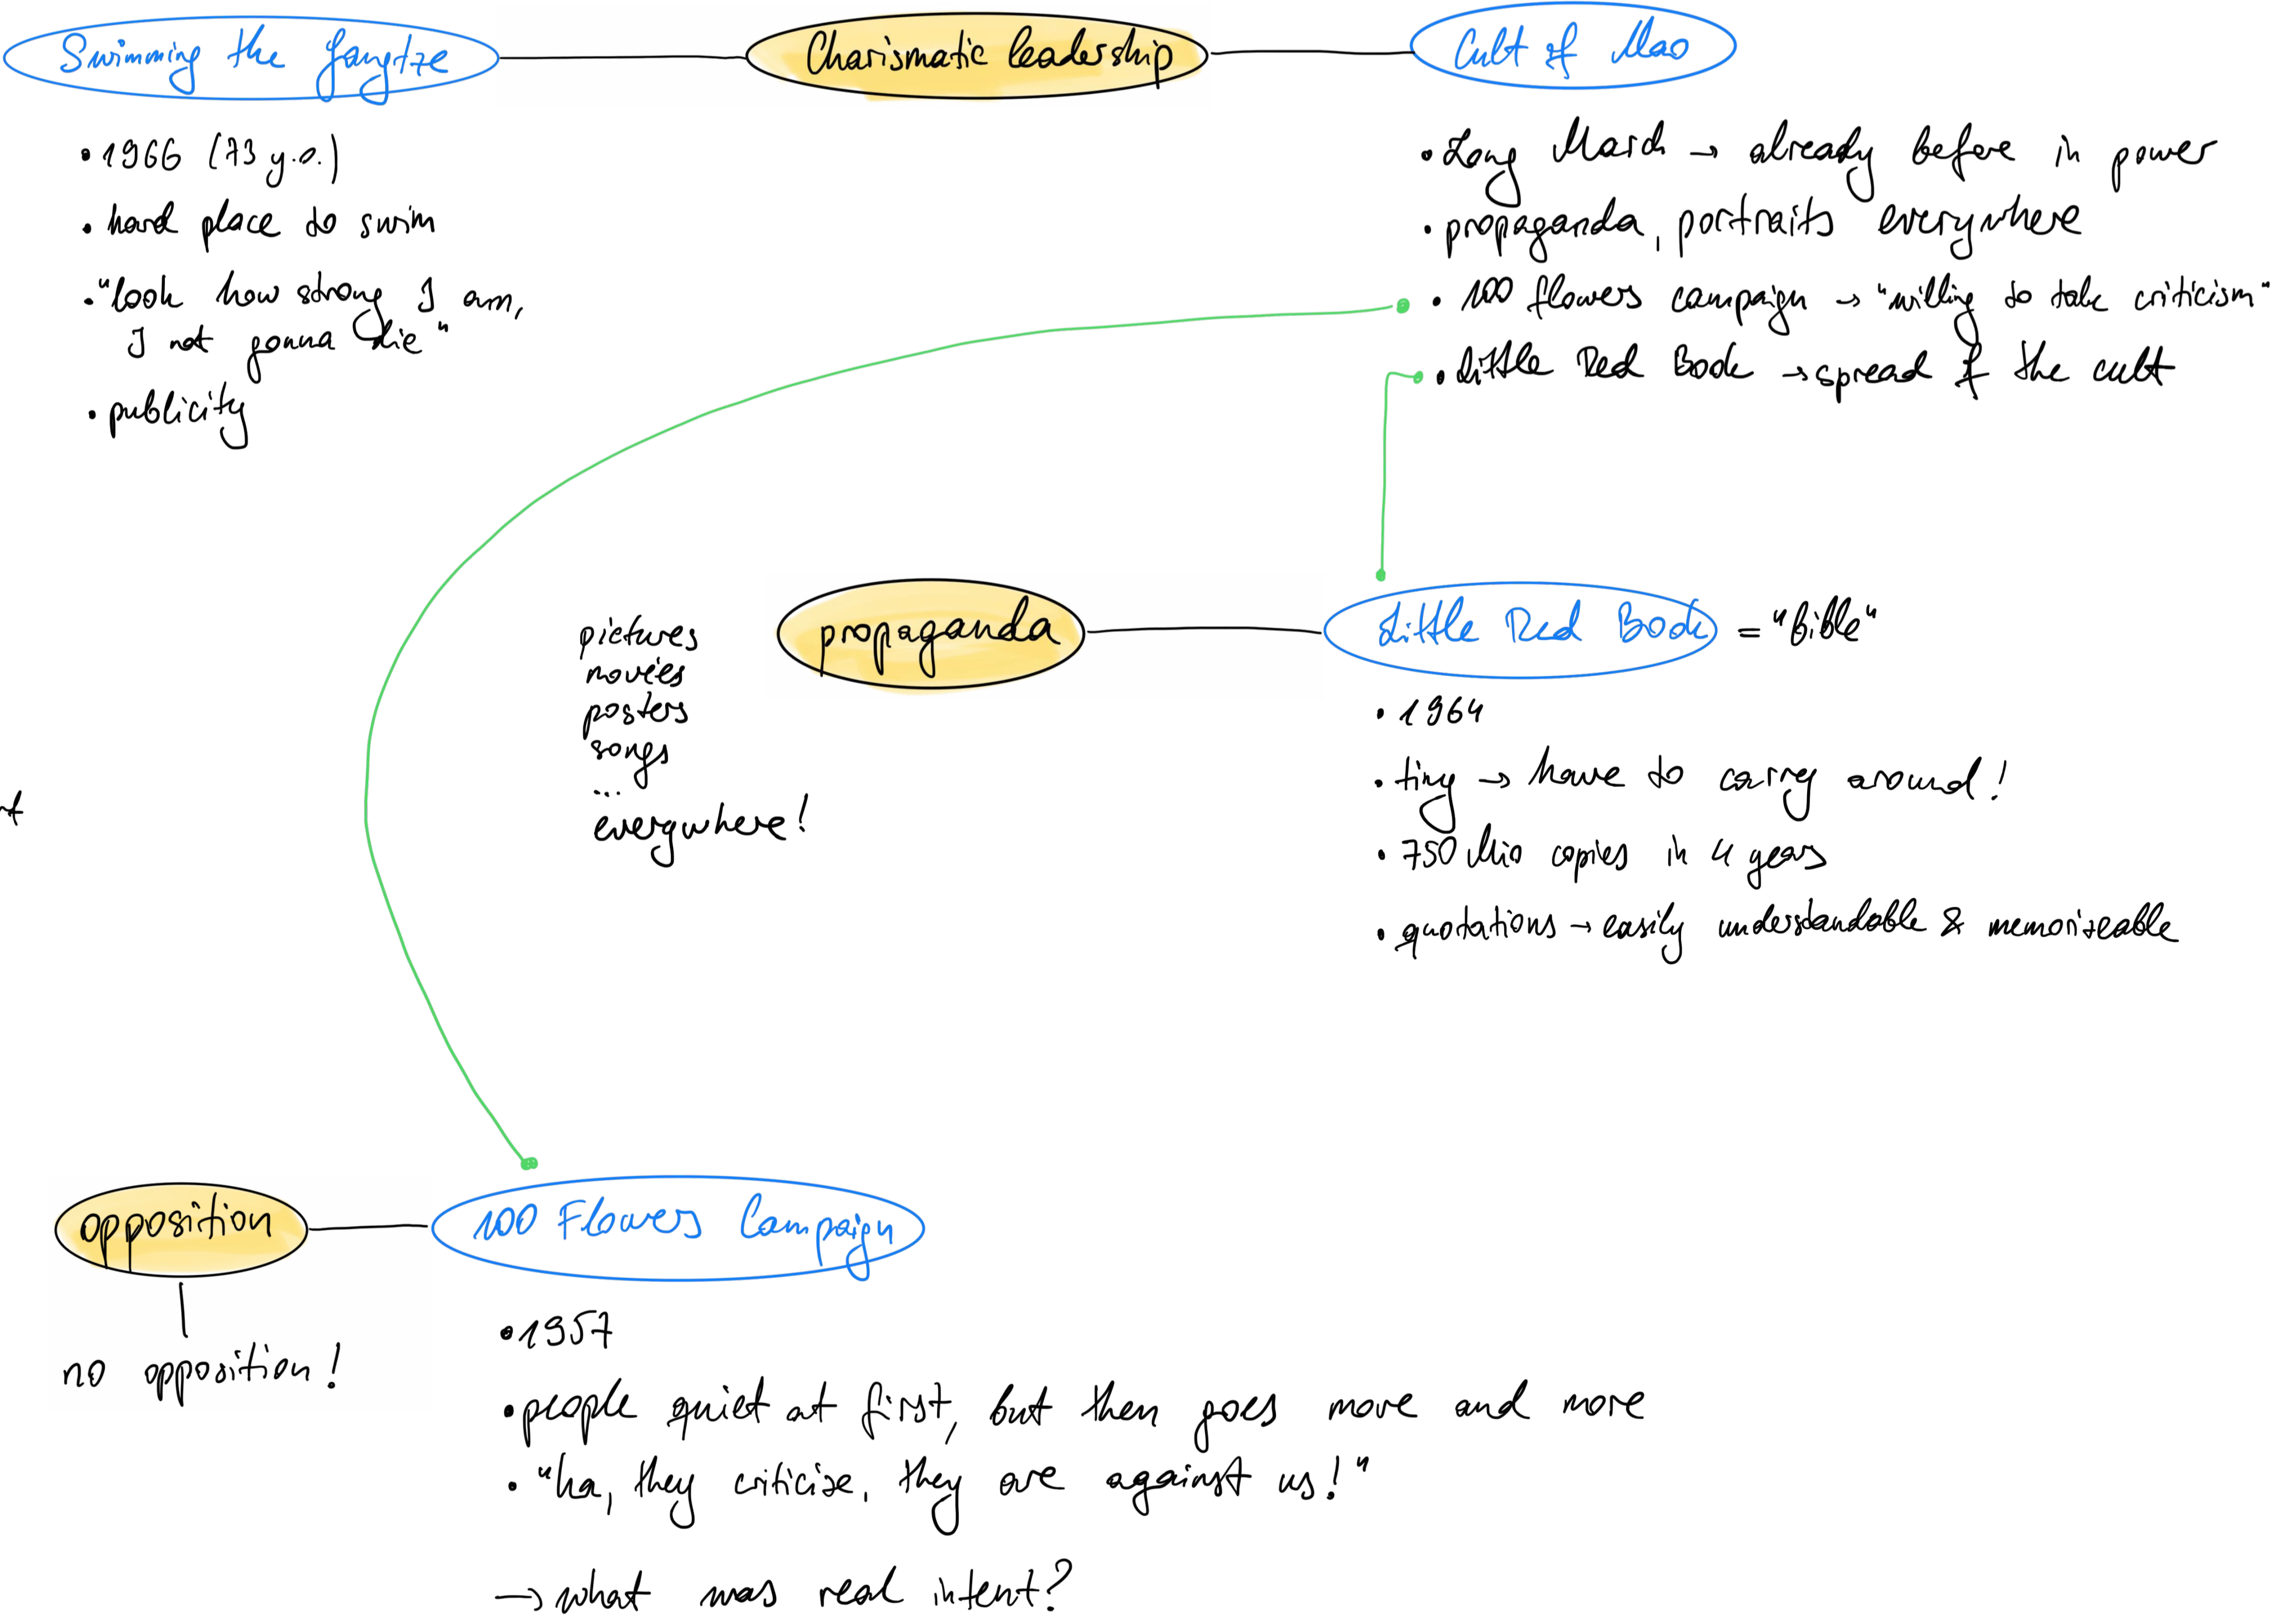 Swimming the Yangtze
Charismatic leadership
Cult of Mao
• 1966 (73 y.o.)
• hard place to swim
• "look how strong I am,
I not gonna die"
• publicity
• Long March → already before in power
• propaganda, portraits everywhere
• 100 flowers campaign → "willing to take criticism"
• Little Red Book → spread of the cult
pictures
movies
posters
songs
...
everywhere!
propaganda
Little Red Book = "Bible"
• 1964
• tiny → have to carry around!
• 750 Mio copies in 4 years
• quotations → easily understandable & memorizeable
opposition
no opposition!
100 Flowers Campaign
• 1957
• people quiet at first, but then goes more and more
• "ha, they criticize, they are against us!"
→ what was real intent?